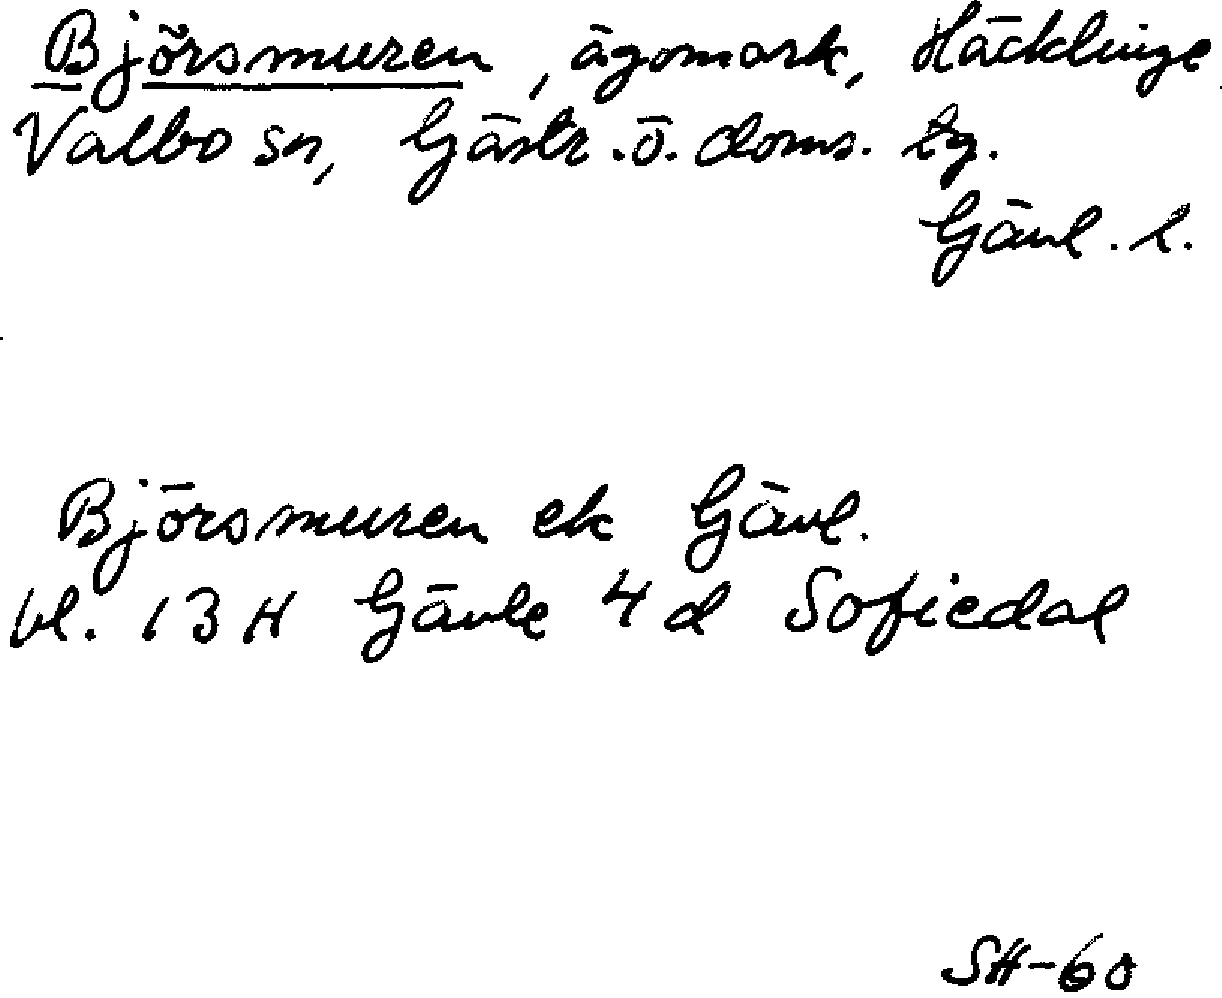 Björsmuren, ägomark, Häcklinge
Valbo sn, Gästr. ö. doms. tg.
Gävl. l.
Björsmuren ek Gävl.
bl. 13 H Gävle 4 d Sofiedal
SH-60